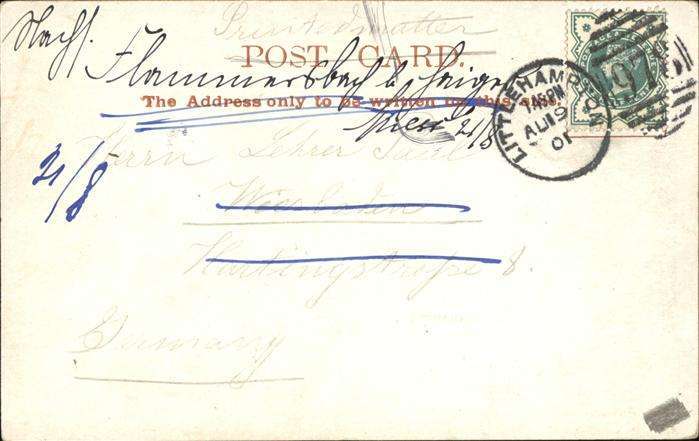 Printed matter
Nachs.
POST CARD.
Flammersbach b. Haiger
The Address only to be written on this side.
21/8
21/8
Herrn Lehrer
Wiesbaden
Hartingstrasse 8.
Germany
LITTLEHAMPTON
AU 19
01